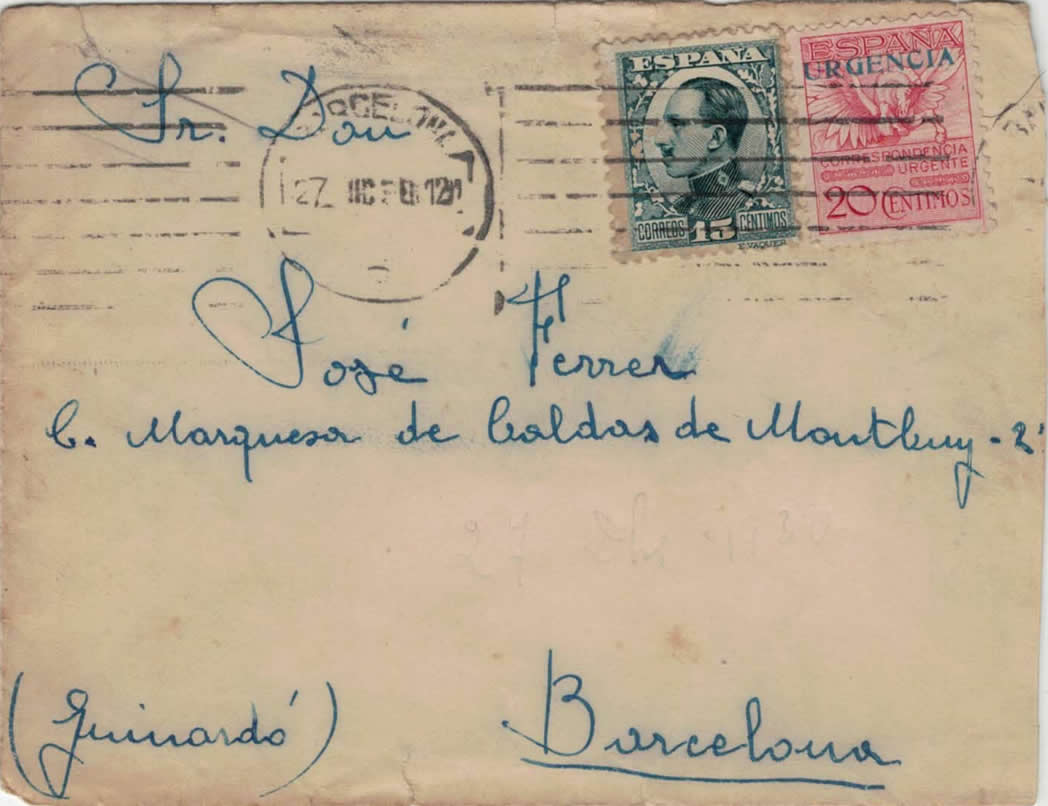 Sr. Don
BARCELONA
27 DIC 30 12
ESPAÑA
CORREOS 15 CENTIMOS
E. VAQUER
ESPAÑA
URGENCIA
CORRESPONDENCIA
URGENTE
20 CENTIMOS
José Ferrer
C. Marquesa de Caldas de Montbuy - 2
(Guinardó)
Barcelona